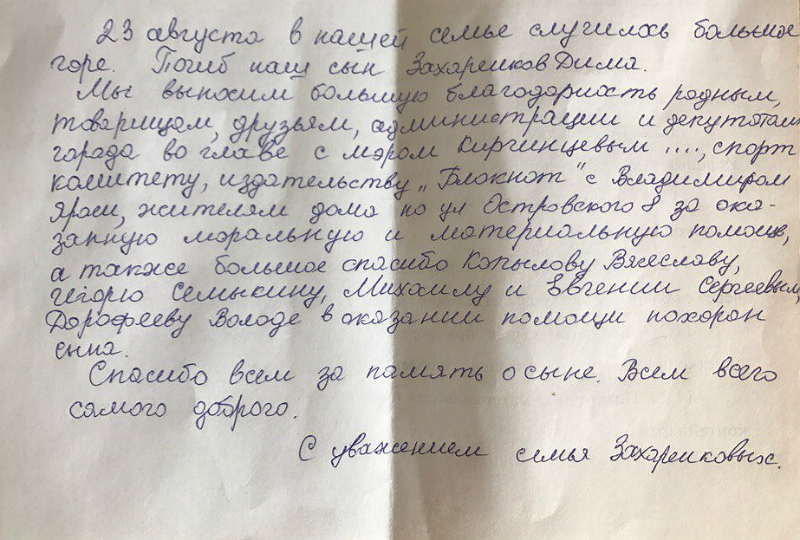 23 августа в нашей семье случилось большое
горе. Погиб наш сын Захаренков Дима.
Мы выносим большую благодарность родным,
товарищам, друзьям, администрации и депутатам
города во главе с мэром Киргинцевым ...., спорт
комитету, издательству „Блокнот" с Владимиром
Яраш, жителям дома по ул Островского 8 за ока-
занную моральную и материальную помощь,
а также большое спасибо Копылову Вячеславу,
Игорю Семыкину, Михаилу и Евгении Сергеевым,
Дорофееву Володе в оказании помощи похорон
сына.
Спасибо всем за память о сыне. Всем всего
самого доброго.
С уважением семья Захаренковых.